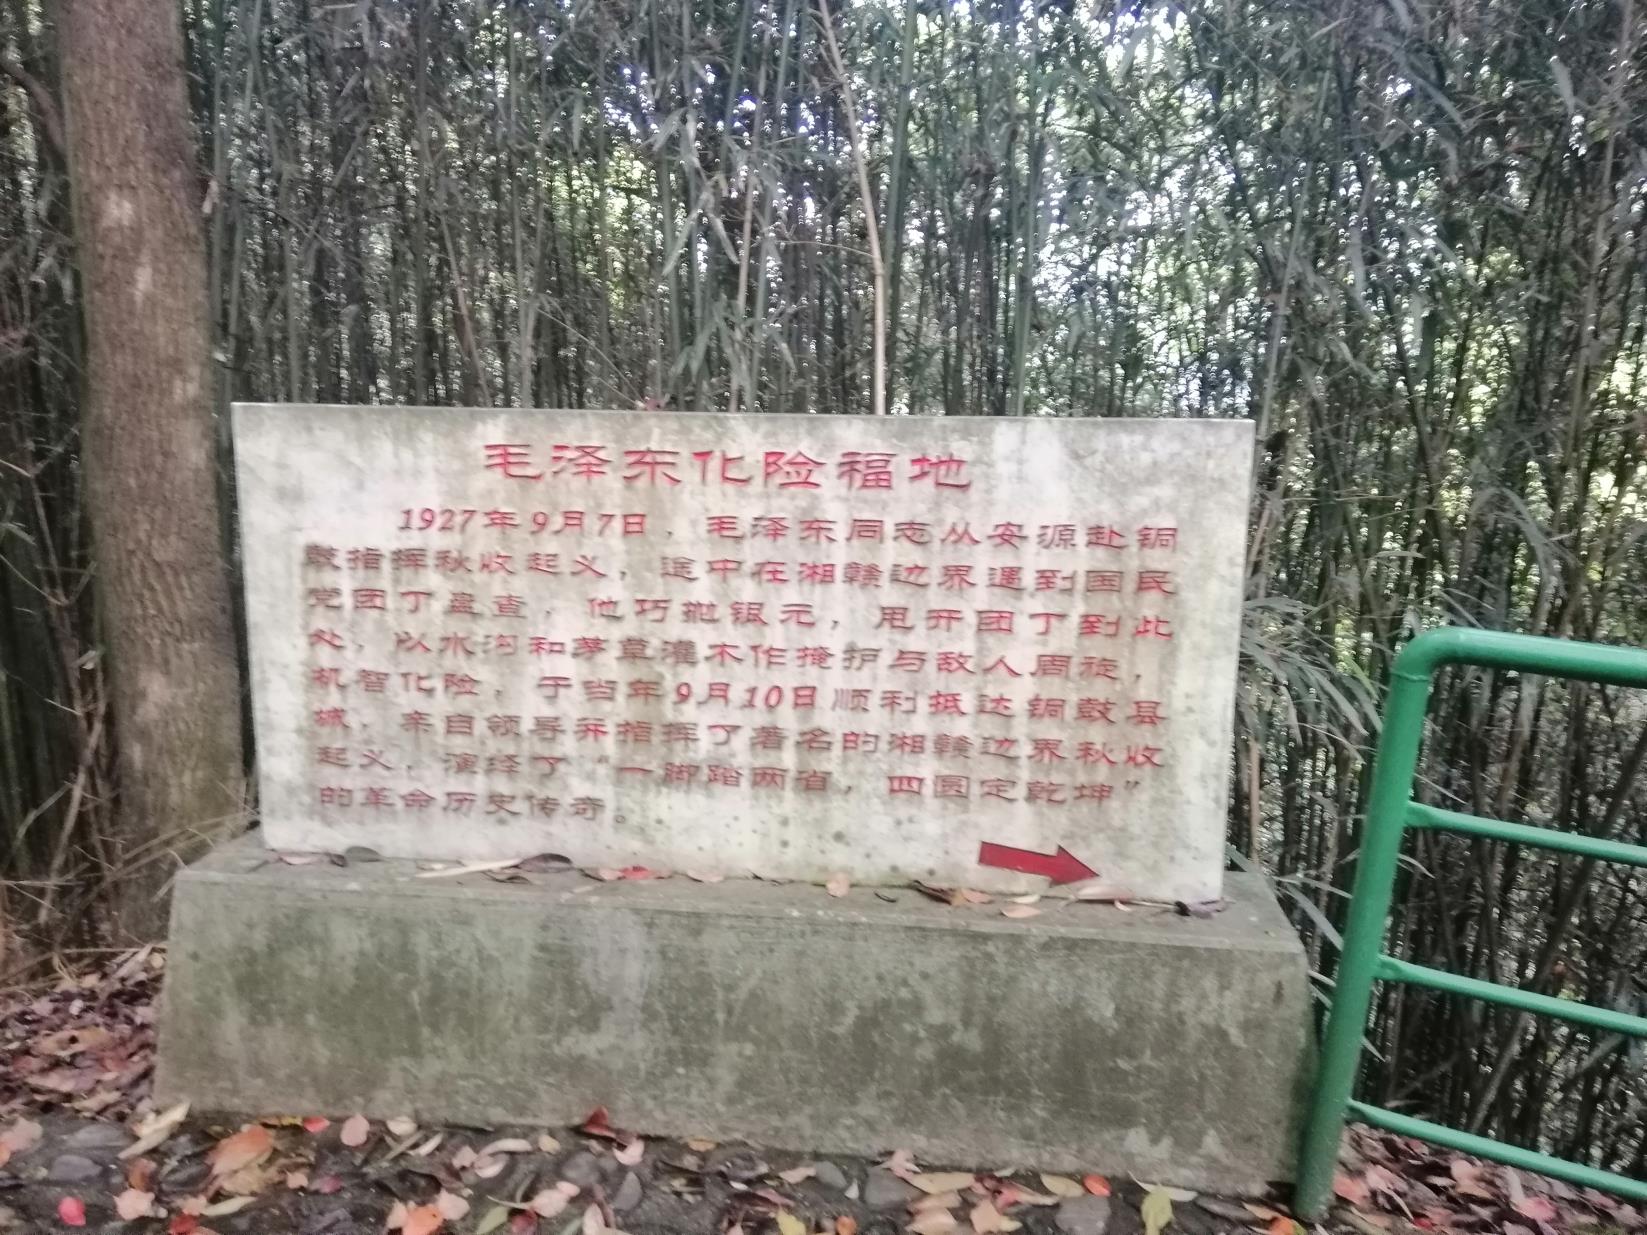 毛泽东化险福地
1927年9月7日，毛泽东同志从安源赴铜
鼓指挥秋收起义，途中在湘赣边界遇到国民
党团丁盘查，他巧抛银元，甩开团丁到此
处，以水沟和茅草灌木作掩护与敌人周旋，
机智化险，于当年9月10日顺利抵达铜鼓县
城，亲自领导并指挥了著名的湘赣边界秋收
起义，演绎了“一脚踏两省，四圆定乾坤”
的革命历史传奇。